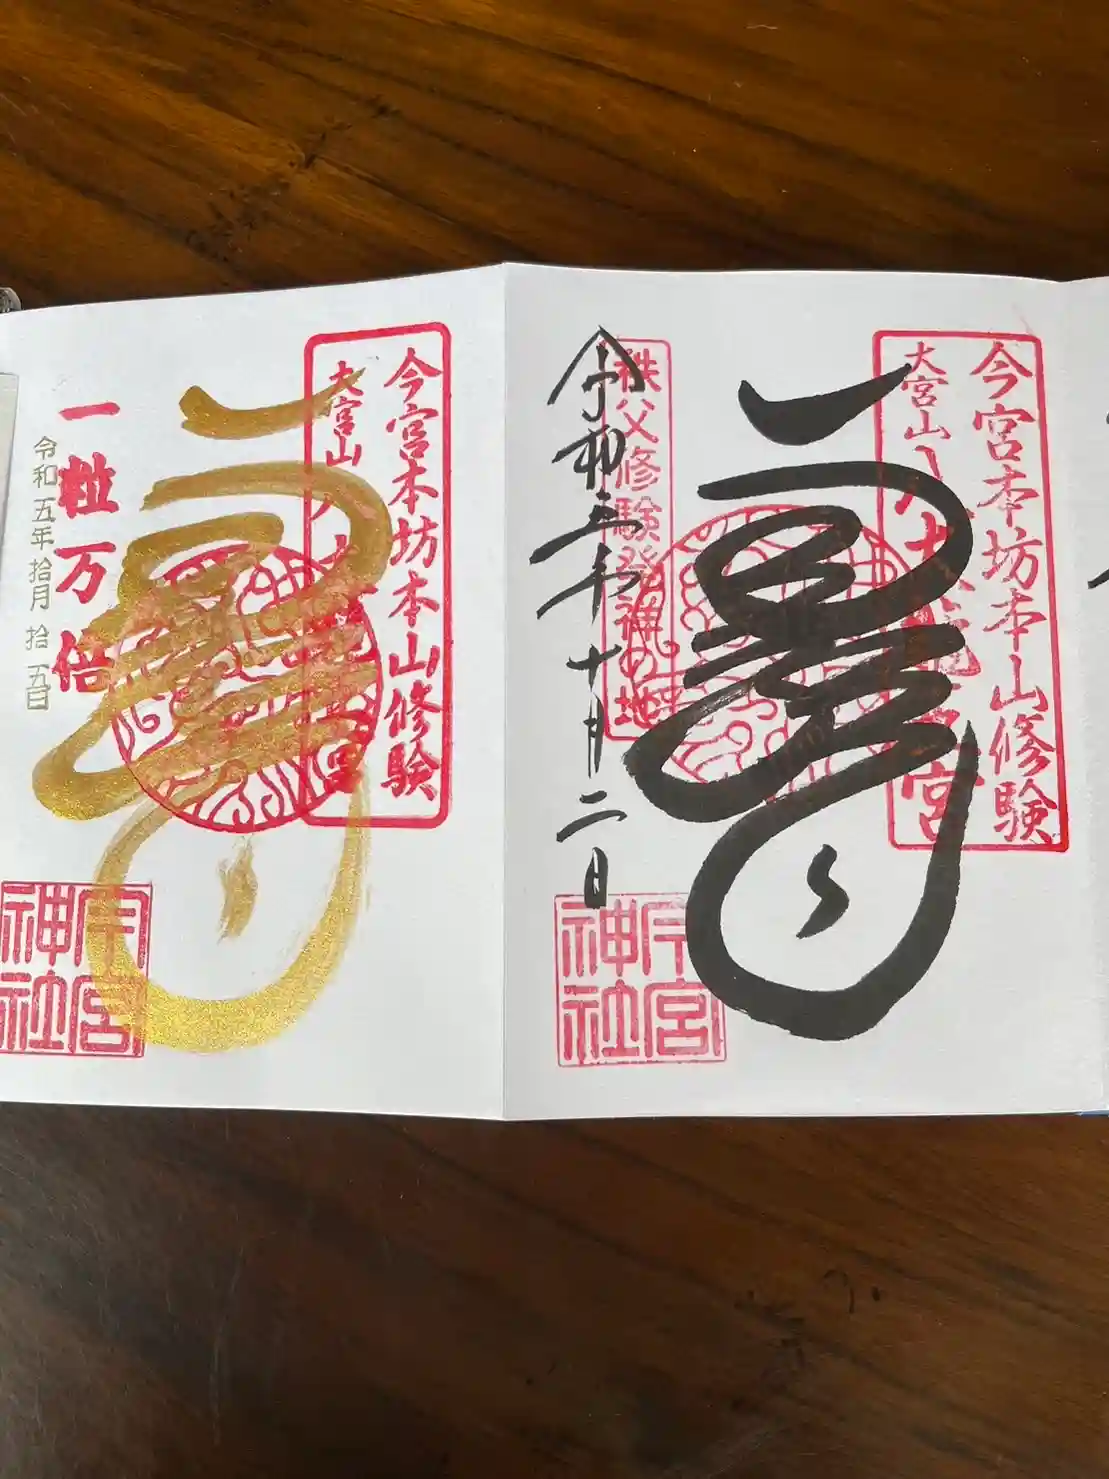 今宮本坊本山修験
大宮山八大龍王宮
秩父修験発祥の地
令和三年十月二日
今宮
神社
今宮本坊本山修験
大宮山八大龍王宮
一粒万倍
令和五年拾月拾五日
今宮
神社